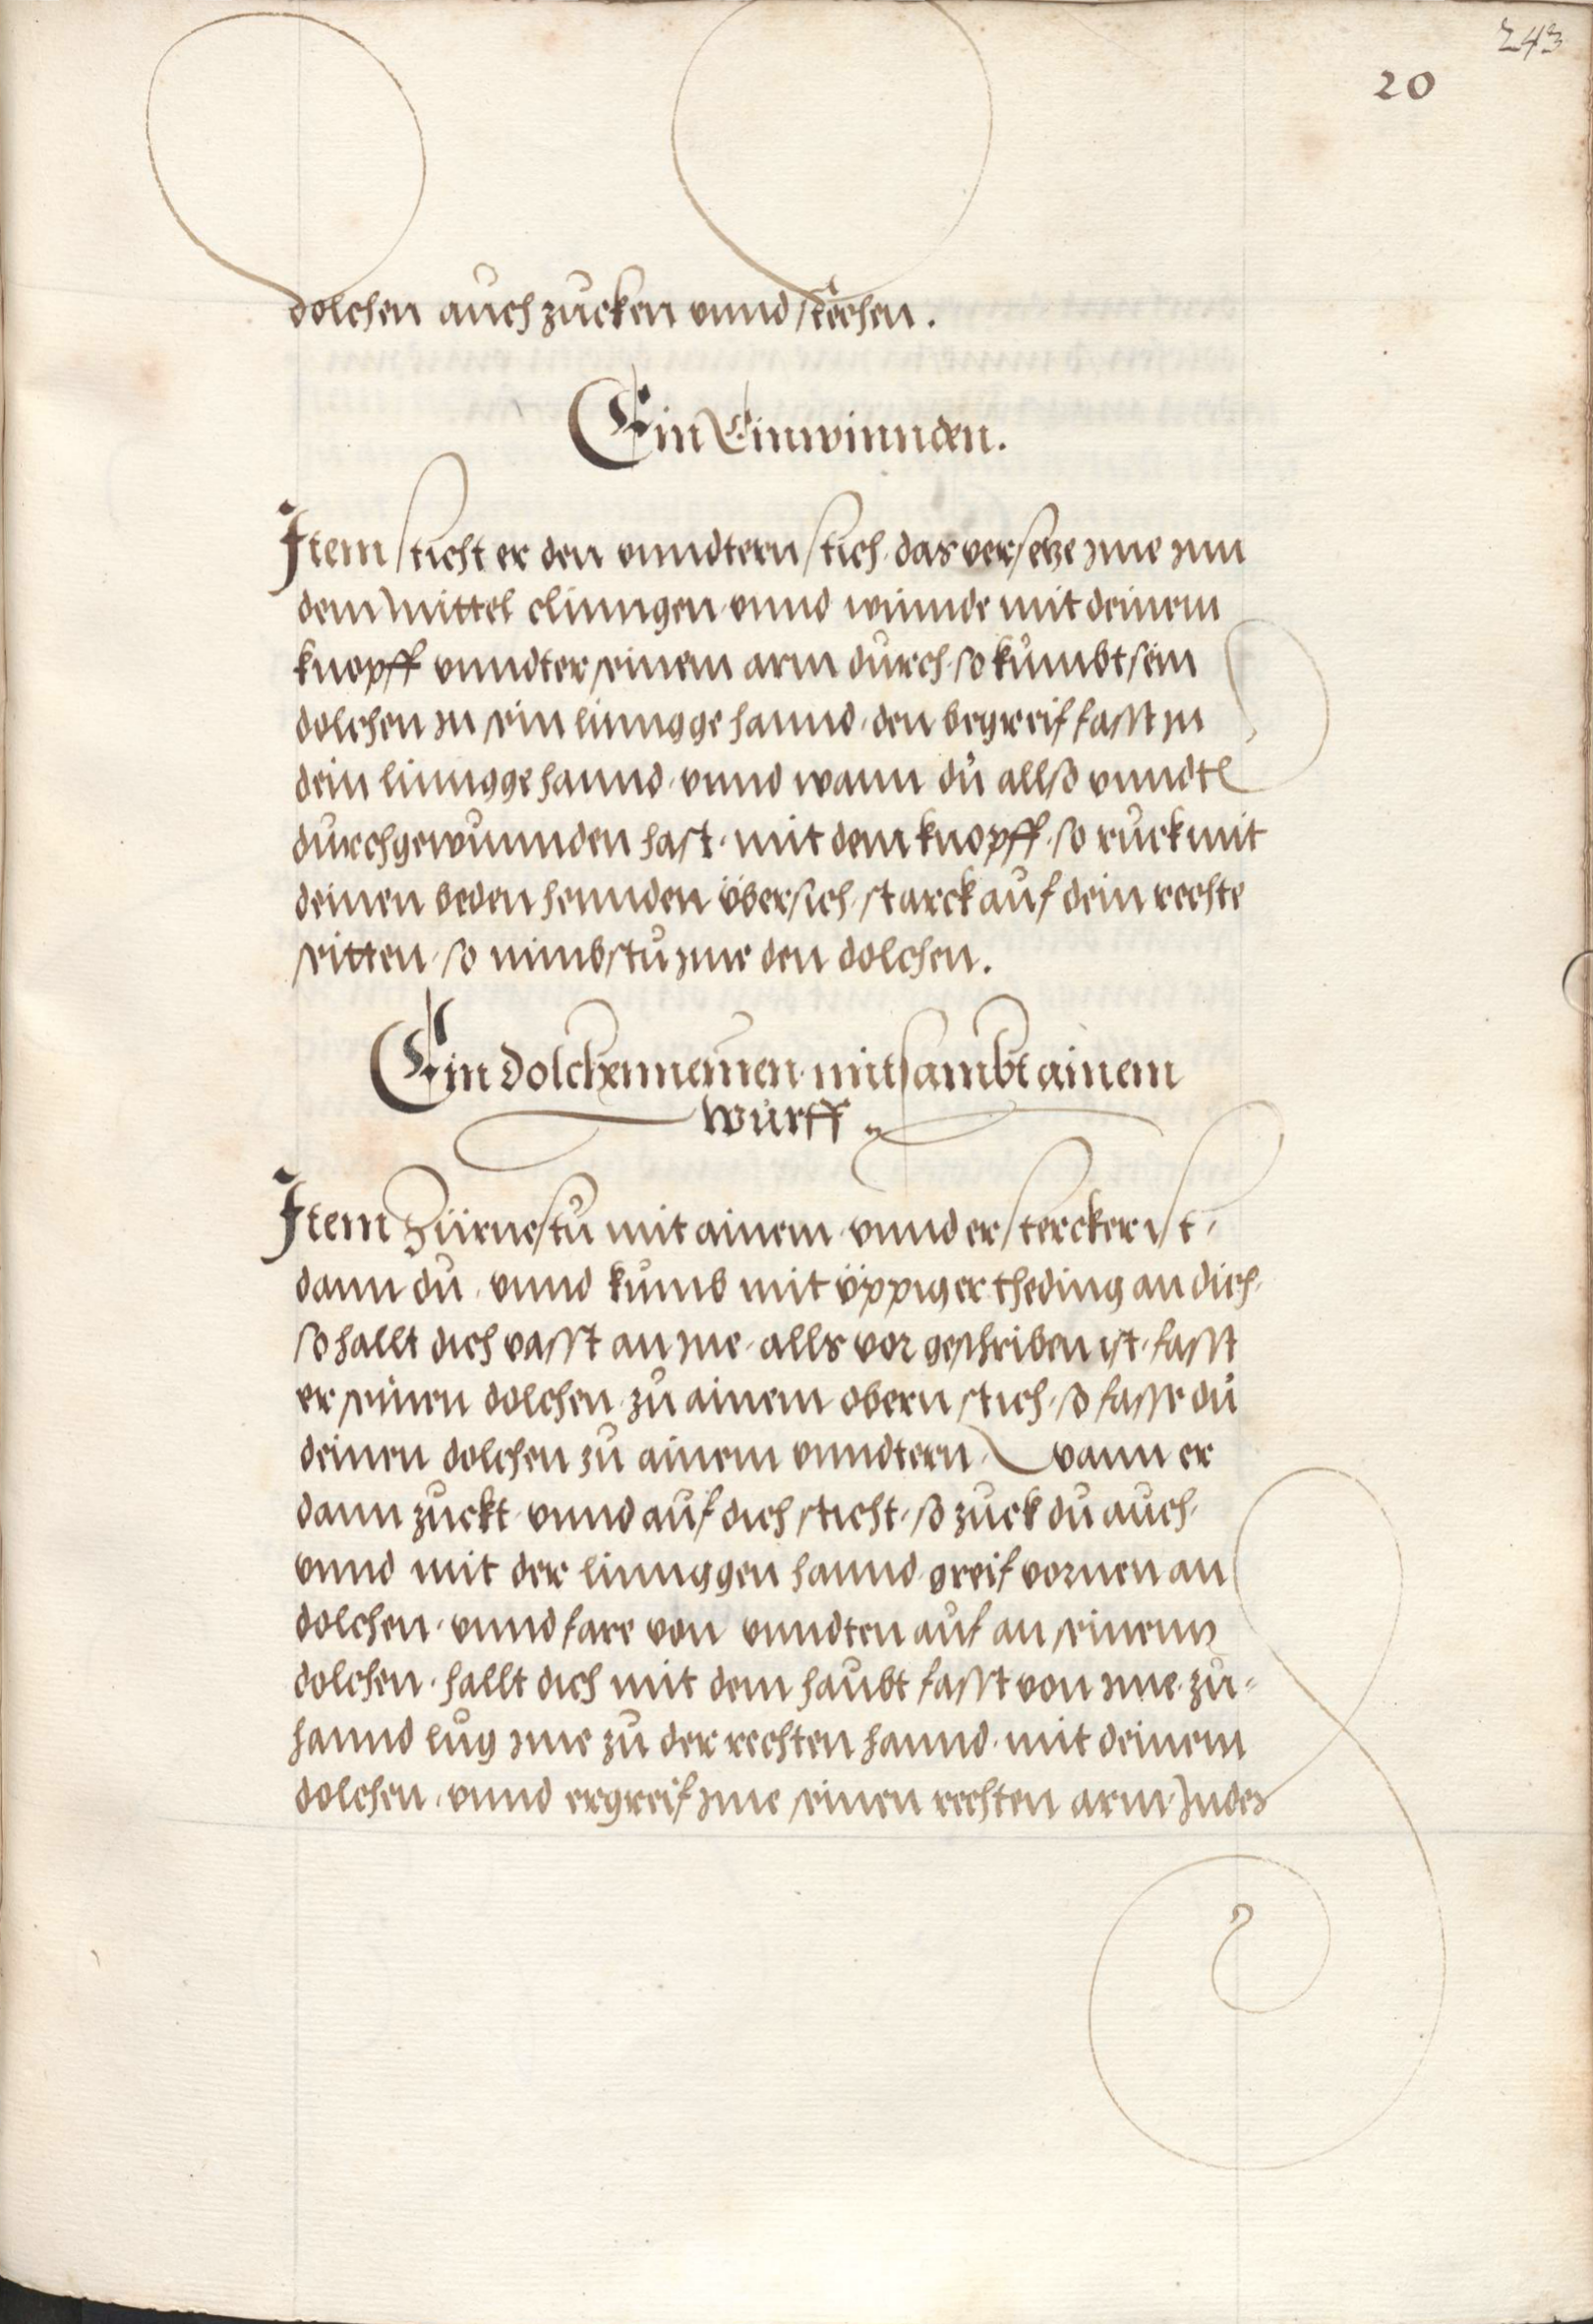 243
20
dolchen auch zucken vnnd stechen.
Ein Einwinnden.
Item sticht er den vnndtern stich, das versetze jme jnn
dem mittel clinngen, vnnd winnde mit deinem
knopff vnndter seinem arm durch, so kumbt sein
dolchen jn sein linngge hannd, den begreif fasst jn
dein linngge hannd, vnnd wann du allso vnndter
durchgewunnden hast, mit dem knopff, so ruck mit
deinen beden hennden übersich starck auf dein rechte
seitten, so nimbstu jme den dolchen.
Ein dolchennemen mitsambt ainem
wurff.
Item Zürnestu mit ainem, vnnd er stercker ist,
dann du, vnnd kumb mit üppiger theding an dich,
so hallt dich vasst an jne, alls vor geschriben ist, fasst
er seinen dolchen zu ainem obern stich, so fasse du
deinen dolchen zu ainem vnndtern, Wann er
dann zuckt, vnnd auf dich sticht, so zuck du auch,
vnnd mit der linnggen hannd greif vornen an
dolchen, vnnd fare von vnndten auf an seinenn
dolchen, hallt dich mit dem haubt fasst von jme, zu=
hannd lug jme zu der rechten hannd, mit deinem
dolchen, vnnd ergreif jme seinen rechten arm, Inndes